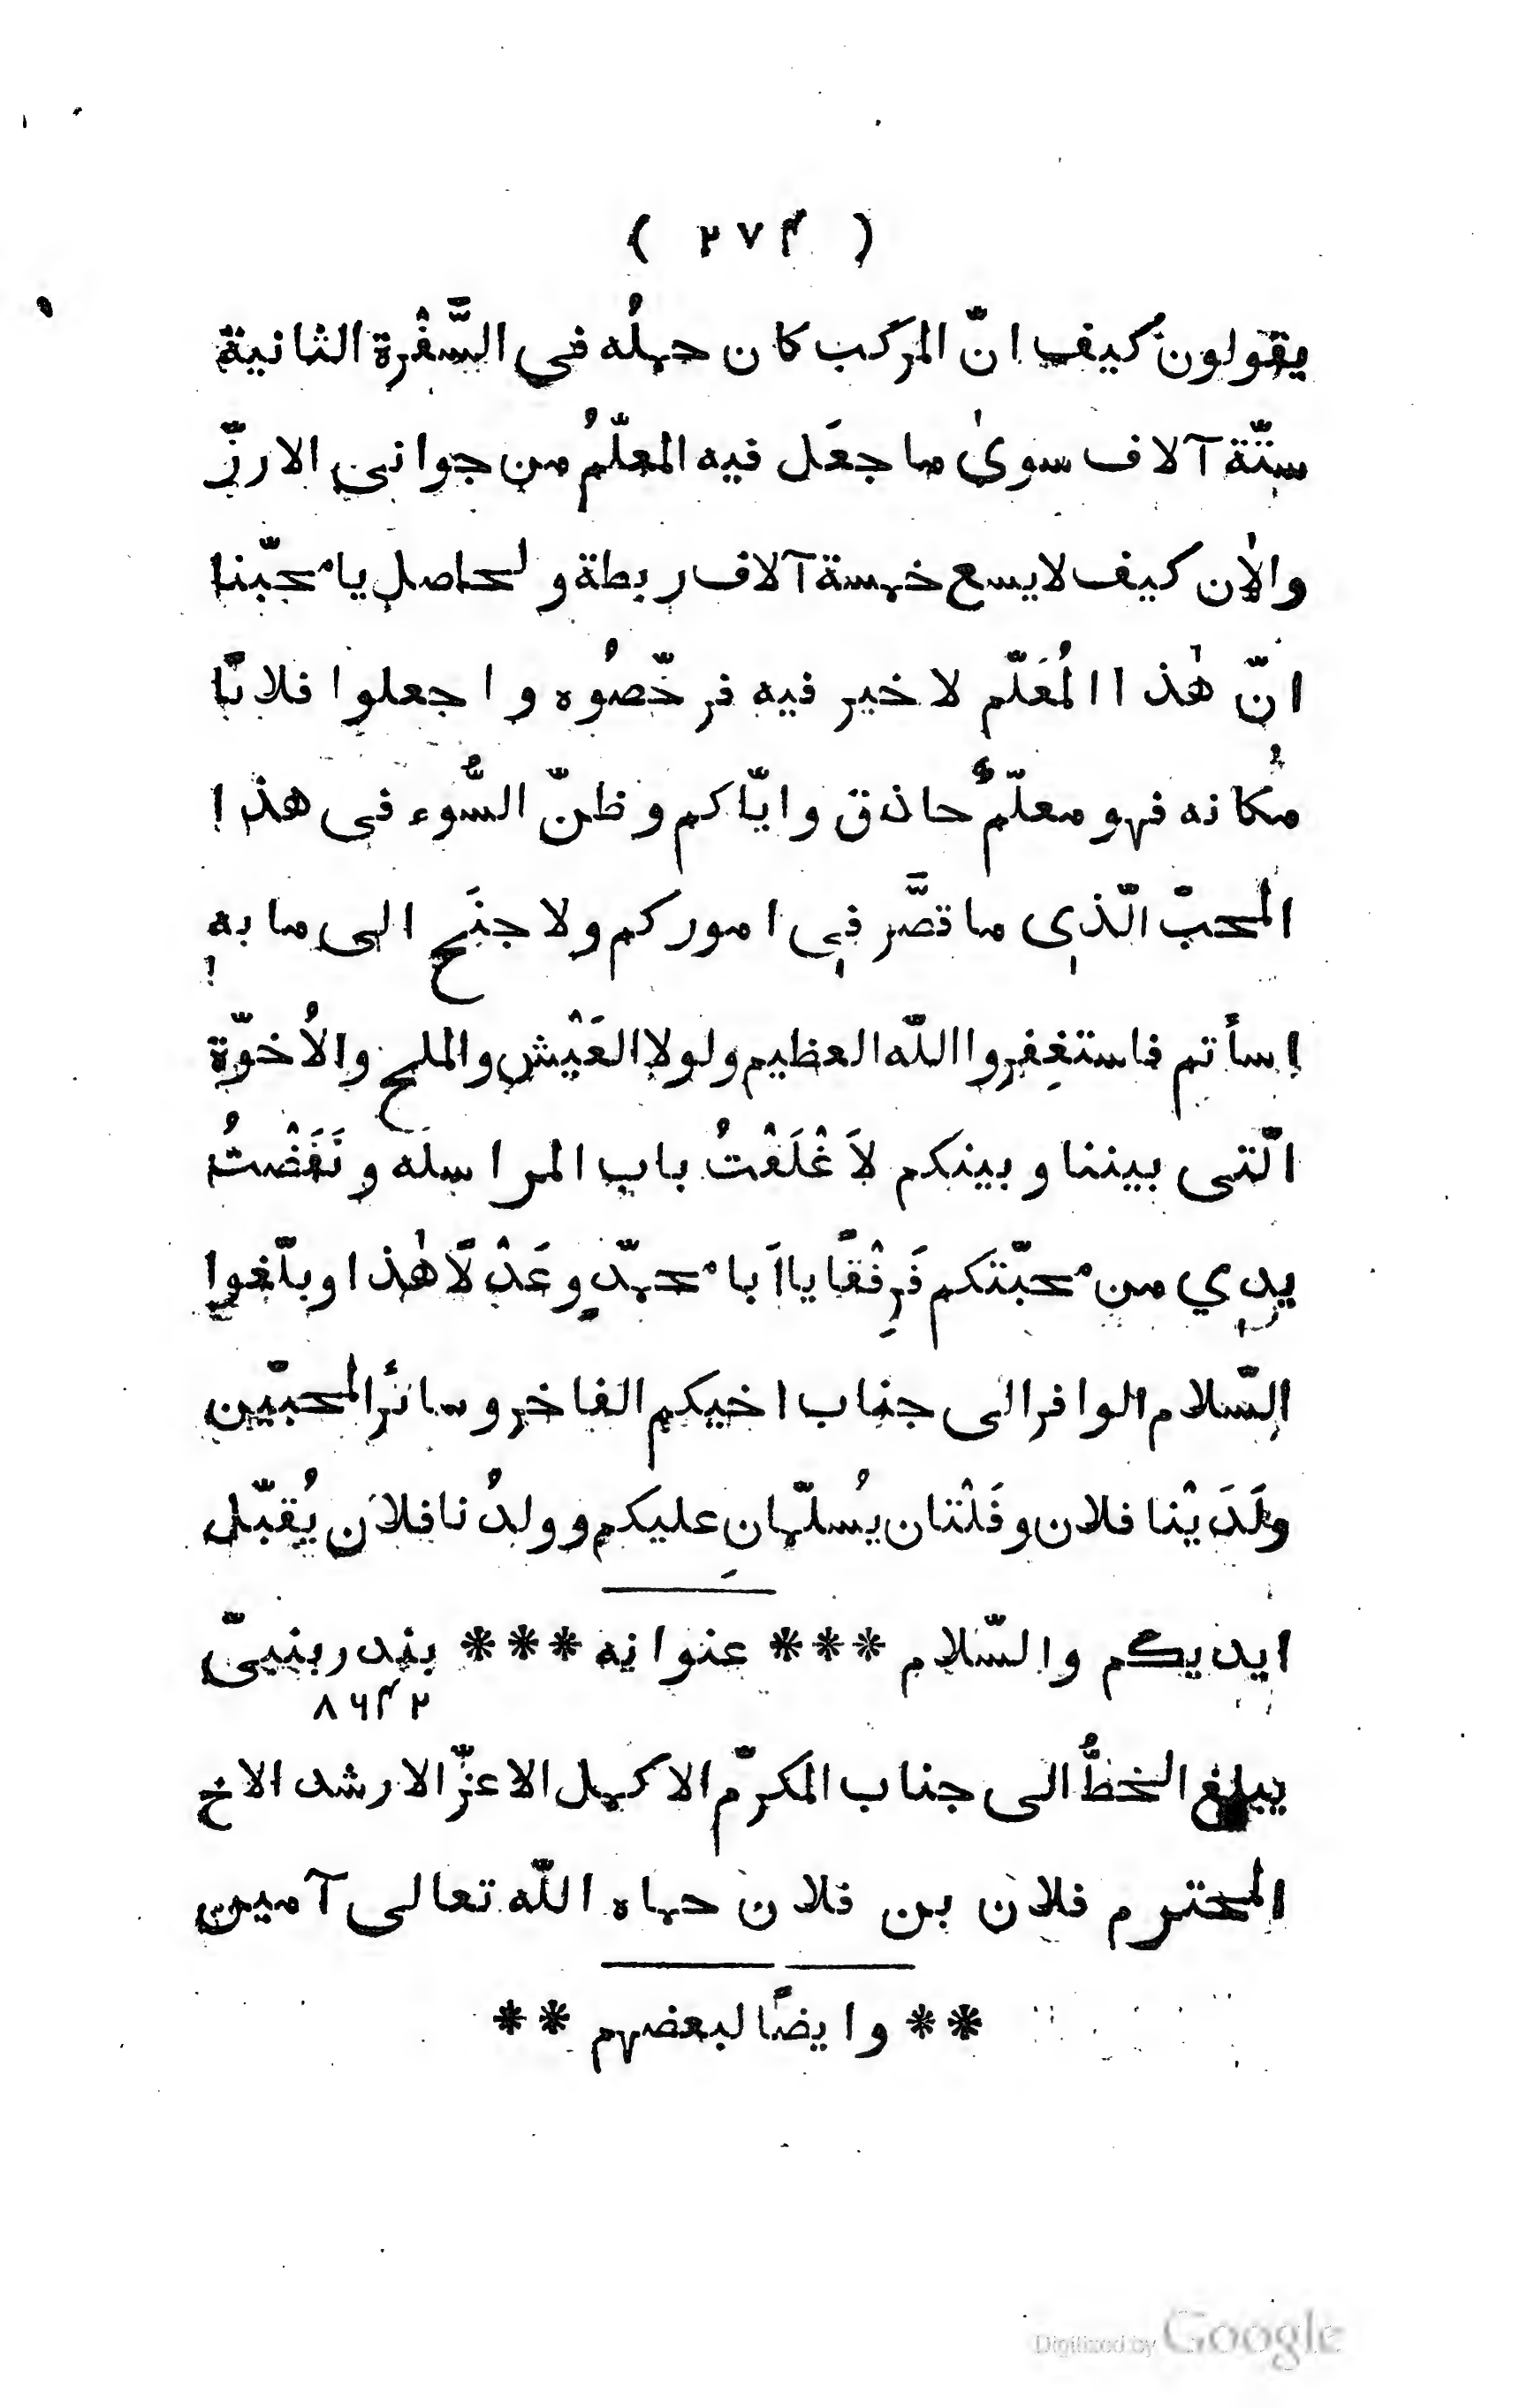 ( ٢٧٤ )
يقولون كيف انّ المركب كان حملُه في السَّفْرة الثانية
ستّة آلاف سوىٰ ما جعَل فيه المعلّمُ من جواني الارزّ
والاٰن كيف لا يسع خمسة آلاف ربطة و لحاصل يا محبّنا
انّ هٰذا المُعَلّم لا خير فيه فرخّصُوه واجعلوا فلانًا
مكانه فهو معلّمٌ حاذق وايّاكم وظنّ السُّوء في هذا
المحبّ الّذي ما قصَّر في اموركم ولا جنَح الى ما به
اسأتم فاستغفِروا اللّه العظيم ولولا العَيْش والملح والاُخوّة
الّتي بيننا وبينكم لاَغْلَقْتُ باب المراسلَه ونَفَضْتُ
يدي من محبّتكم فَرِفْقًا يا اَبا محمّدٍ وعَدْلًا هٰذا وبلّغوا
السّلام الوافر الى جناب اخيكم الفاخر وسائر المحبّين
ولَدَيْنا فلان وفَلْتان يُسلّمانِ عليكم وولدُنا فلان يُقبّل
ايديكم والسّلام *** عنوانه *** بندر بنبيّ
٨٦٤٢
يبلغ الخطُّ الى جناب المكرّم الاكمل الاعزّ الارشد الاخ
المحترم فلان بن فلان حماه اللّه تعالى آمين
** وايضًا لبعضهم **
Digitized by Google